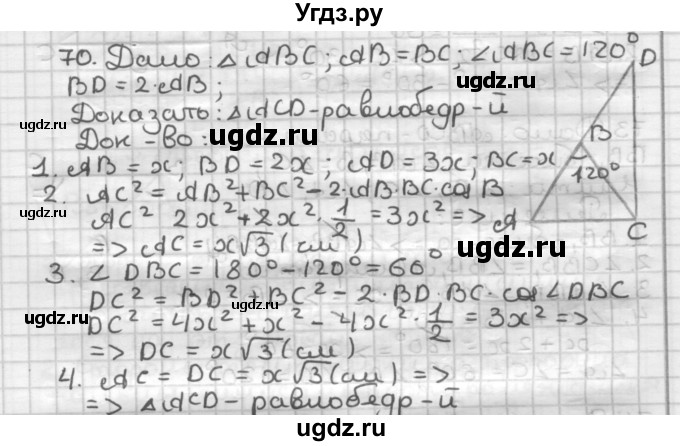 Угдз.ру
70. Дано: △ABC; AB=BC; ∠ABC=120°
BD=2·AB;
Доказать: △ACD-равнобедр-й
Док-во:
1. AB=x; BD=2x; AD=3x; BC=x
2. AC²=AB²+BC²-2·AB·BC·cos B
AC² 2x²+2x²·1/2=3x² =>
=> AC=x√3(см)
3. ∠DBC=180°-120°=60°
DC²=BD²+BC²-2·BD·BC·cos∠DBC
DC²=4x²+x²-4x²·1/2=3x² =>
=> DC=x√3(см)
4. AC=DC=x√3(см) =>
=> △ACD-равнобедр-й
D
B
120°
A
C
ugdz.ru
ugdz.ru
ugdz.ru
ugdz.ru
ugdz.ru
ugdz.ru
ugdz.ru
ugdz.ru
ugdz.ru
ugdz.ru
ugdz.ru
ugdz.ru